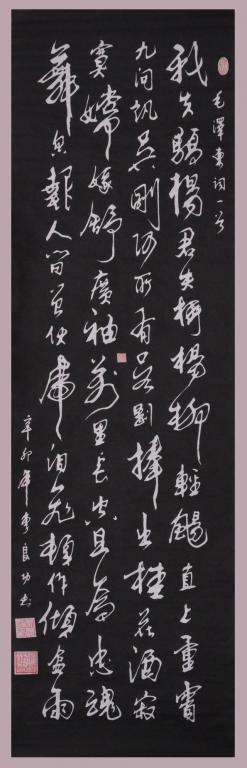 毛澤東词一首
我失驕楊君失柳楊柳輕颺直上重霄
九问訊吴剛何所有吴剛捧出桂花酒寂
寞嫦娥舒廣袖万里长空且為忠魂
舞忽報人间曾伏虎泪飛頓作傾盆雨
辛卯年